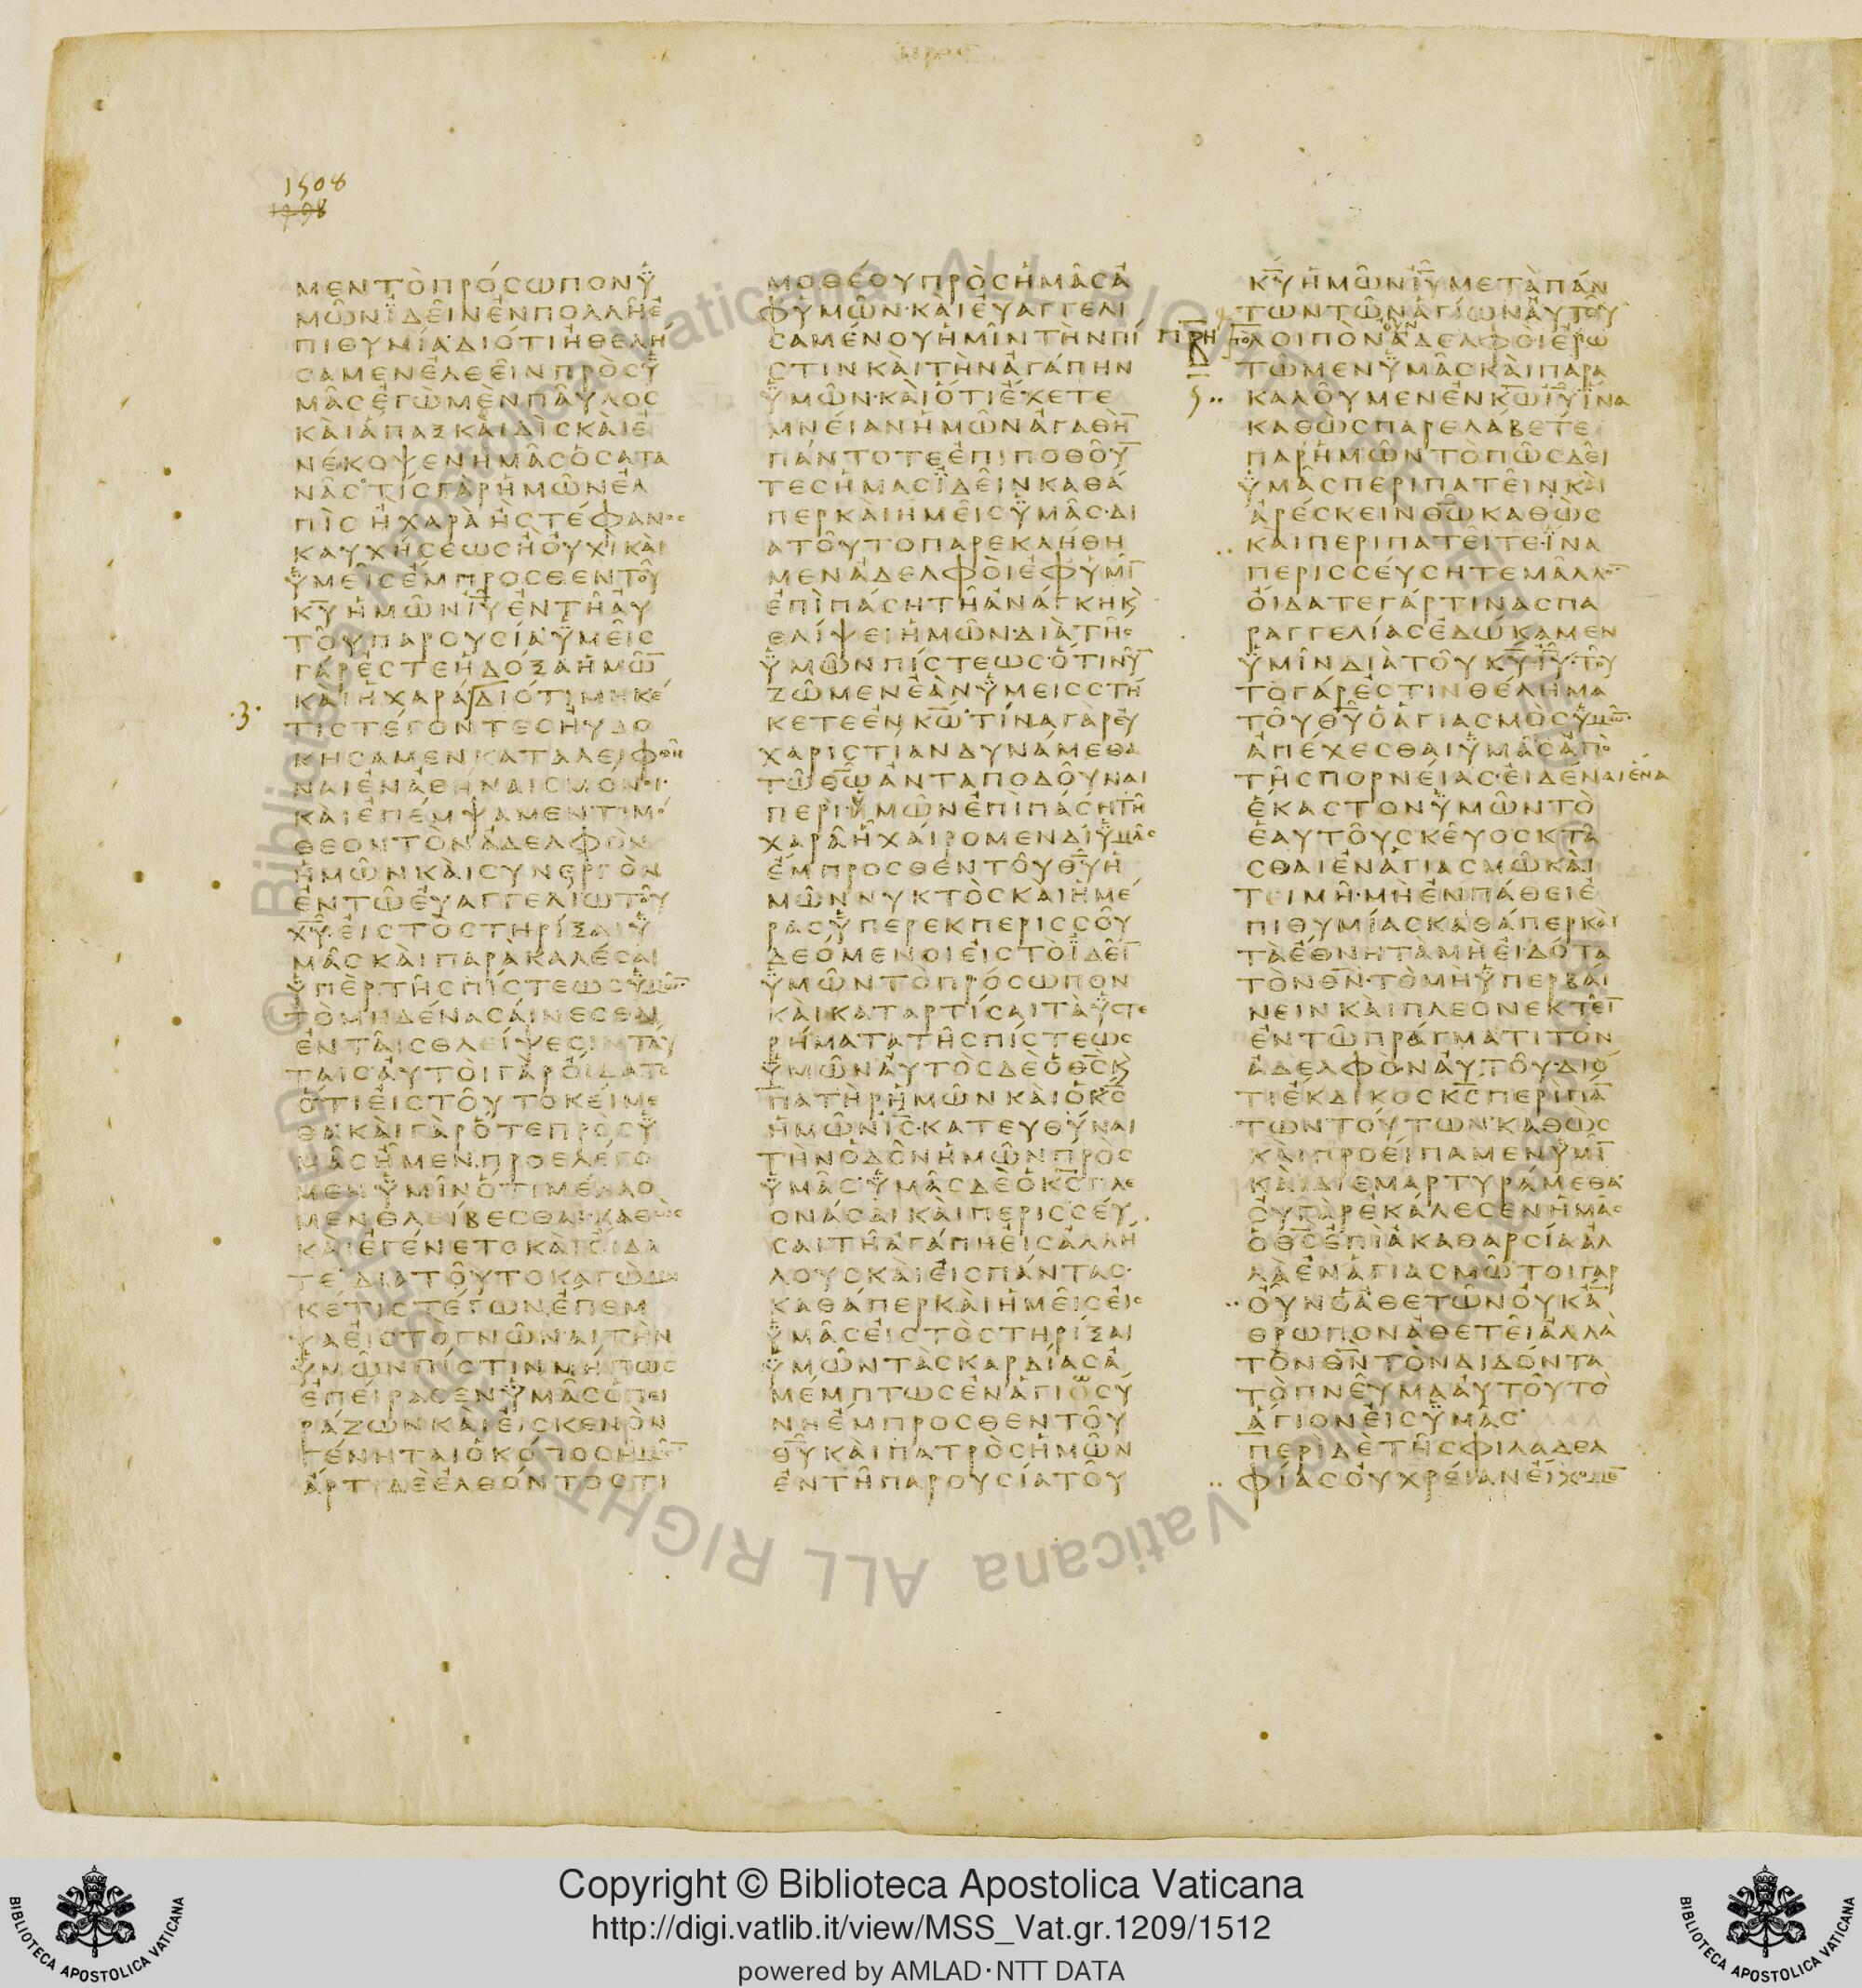 1508
ΜΕΝΤΟΠΡΟϹΩΠΟΝΥ
ΜΩΝΙΔΕΙΝΕΝΠΟΛΛΗΕ
ΠΙΘΥΜΙΑ·ΔΙΟΤΙΗΘΕΛΗ
ϹΑΜΕΝΕΛΘΕΙΝΠΡΟϹΥ
ΜΑϹΕΓΩΜΕΝΠΑΥΛΟϹ
ΚΑΙΑΠΑΞΚΑΙΔΙϹΚΑΙΕ
ΝΕΚΟΨΕΝΗΜΑϹΟϹΑΤΑ
ΝΑϹ·ΤΙϹΓΑΡΗΜΩΝΕΛ
ΠΙϹΗΧΑΡΑΗϹΤΕΦΑΝΟϹ
ΚΑΥΧΗϹΕΩϹΗΟΥΧΙΚΑΙ
ΥΜΕΙϹΕΜΠΡΟϹΘΕΝΤΟΥ
Κ̅Υ̅ΗΜΩΝΙ̅Υ̅ΕΝΤΗΑΥ
ΤΟΥΠΑΡΟΥϹΙΑ·ΥΜΕΙϹ
ΓΑΡΕϹΤΕΗΔΟΞΑΗΜΩ̅
ΚΑΙΗΧΑΡΑΔΙΟΤΙΜΗΚΕ
·3·
ΤΙϹΤΕΓΟΝΤΕϹΗΥΔΟ
ΚΗϹΑΜΕΝΚΑΤΑΛΕΙΦΘΗ
ΝΑΙΕΝΑΘΗΝΑΙϹΜΟΝΟΙ·
ΚΑΙΕΠΕΜΨΑΜΕΝΤΙΜΟ
ΘΕΟΝΤΟΝΑΔΕΛΦΟΝ
ΗΜΩΝΚΑΙϹΥΝΕΡΓΟΝ
ΕΝΤΩΕΥΑΓΓΕΛΙΩΤΟΥ
Χ̅Υ̅·ΕΙϹΤΟϹΤΗΡΙΞΑΙΥ
ΜΑϹΚΑΙΠΑΡΑΚΑΛΕϹΑΙ
ΥΠΕΡΤΗϹΠΙϹΤΕΩϹΥΜΩ̅
ΤΟΜΗΔΕΝΑϹΑΙΝΕϹΘΑΙ
ΕΝΤΑΙϹΘΛΕΙΨΕϹΙΝΤΑΥ
ΤΑΙϹΑΥΤΟΙΓΑΡΟΙΔΑΤΕ
ΟΤΙΕΙϹΤΟΥΤΟΚΕΙΜΕ
ΘΑ·ΚΑΙΓΑΡΟΤΕΠΡΟϹΥ
ΜΑϹΗΜΕΝΠΡΟΕΛΕΓΟ
ΜΕΝΥΜΙΝΟΤΙΜΕΛΛΟ
ΜΕΝΘΛΕΙΒΕϹΘΑΙ·ΚΑΘΩϹ
ΚΑΙΕΓΕΝΕΤΟΚΑΙΟΙΔΑ
ΤΕ·ΔΙΑΤΟΥΤΟΚΑΓΩΜΗ
ΚΕΤΙϹΤΕΓΩΝΕΠΕΜ
ΨΑΕΙϹΤΟΓΝΩΝΑΙΤΗΝ
ΥΜΩΝΠΙϹΤΙΝΜΗΠΩϹ
ΕΠΕΙΡΑϹΕΝΥΜΑϹΟΠΕΙ
ΡΑΖΩΝΚΑΙΕΙϹΚΕΝΟΝ
ΓΕΝΗΤΑΙΟΚΟΠΟϹΗΜΩ̅
ΑΡΤΙΔΕΕΛΘΟΝΤΟϹΤΙ
ΜΟΘΕΟΥΠΡΟϹΗΜΑϹΑ
ΦΥΜΩΝ·ΚΑΙΕΥΑΓΓΕΛΙ
ϹΑΜΕΝΟΥΗΜΙΝΤΗΝΠΙ
ϹΤΙΝΚΑΙΤΗΝΑΓΑΠΗΝ
ΥΜΩΝ·ΚΑΙΟΤΙΕΧΕΤΕ
ΜΝΕΙΑΝΗΜΩΝΑΓΑΘΗ̅
ΠΑΝΤΟΤΕΕΠΙΠΟΘΟΥ̅
ΤΕϹΗΜΑϹΙΔΕΙΝΚΑΘΑ
ΠΕΡΚΑΙΗΜΕΙϹΥΜΑϹ·ΔΙ
ΑΤΟΥΤΟΠΑΡΕΚΛΗΘΗ
ΜΕΝΑΔΕΛΦΟΙΕΦΥΜΙ̅
ΕΠΙΠΑϹΗΤΗΑΝΑΓΚΗΚ
ΘΛΙΨΕΙΗΜΩΝ·ΔΙΑΤΗϹ
ΥΜΩΝΠΙϹΤΕΩϹ·ΟΤΙΝΥ̅
ΖΩΜΕΝΕΑΝΥΜΕΙϹϹΤΗ
ΚΕΤΕΕΝΚ̅Ω̅·ΤΙΝΑΓΑΡΕΥ
ΧΑΡΙϹΤΙΑΝΔΥΝΑΜΕΘΑ
ΤΩΘ̅Ω̅ΑΝΤΑΠΟΔΟΥΝΑΙ
ΠΕΡΙΥΜΩΝΕΠΙΠΑϹΗΤΗ
ΧΑΡΑΗΧΑΙΡΟΜΕΝΔΙΥΜΑϹ
ΕΜΠΡΟϹΘΕΝΤΟΥΘ̅Υ̅Η
ΜΩΝΝΥΚΤΟϹΚΑΙΗΜΕ
ΡΑϹΥΠΕΡΕΚΠΕΡΙϹϹΟΥ
ΔΕΟΜΕΝΟΙΕΙϹΤΟΙΔΕΙ̅
ΥΜΩΝΤΟΠΡΟϹΩΠΟΝ
ΚΑΙΚΑΤΑΡΤΙϹΑΙΤΑΥϹΤΕ
ΡΗΜΑΤΑΤΗϹΠΙϹΤΕΩϹ
ΥΜΩΝΑΥΤΟϹΔΕΟΘ̅Ϲ̅Κ
ΠΑΤΗΡΗΜΩΝΚΑΙΟΚ̅Ϲ̅
ΗΜΩΝΙ̅Ϲ̅·ΚΑΤΕΥΘΥΝΑΙ
ΤΗΝΟΔΟΝΗΜΩΝΠΡΟϹ
ΥΜΑϹ·ΥΜΑϹΔΕΟΚ̅Ϲ̅ΠΛΕ
ΟΝΑϹΑΙΚΑΙΠΕΡΙϹϹΕΥ
ϹΑΙΤΗΑΓΑΠΗΕΙϹΑΛΛΗ
ΛΟΥϹΚΑΙΕΙϹΠΑΝΤΑϹ·
ΚΑΘΑΠΕΡΚΑΙΗΜΕΙϹΕΙϹ
ΥΜΑϹΕΙϹΤΟϹΤΗΡΙΞΑΙ
ΥΜΩΝΤΑϹΚΑΡΔΙΑϹΑ
ΜΕΜΠΤΩϹΕΝΑΓΙΩϹΥ
ΝΗΕΜΠΡΟϹΘΕΝΤΟΥ
Θ̅Υ̅ΚΑΙΠΑΤΡΟϹΗΜΩΝ
ΕΝΤΗΠΑΡΟΥϹΙΑΤΟΥ
Κ̅Υ̅ΗΜΩΝΙ̅Υ̅ΜΕΤΑΠΑΝ
ΤΩΝΤΩΝΑΓΙΩΝΑΥΤΟΥ
ΛΟΙΠΟΝΑΔΕΛΦΟΙΕΡΩ
ΤΩΜΕΝΥΜΑϹΚΑΙΠΑΡΑ
ΚΑΛΟΥΜΕΝΕΝΚ̅Ω̅Ι̅Υ̅ΙΝΑ
ΚΑΘΩϹΠΑΡΕΛΑΒΕΤΕ
ΠΑΡΗΜΩΝΤΟΠΩϹΔΕΙ
ΥΜΑϹΠΕΡΙΠΑΤΕΙΝΚΑΙ
ΑΡΕϹΚΕΙΝΘ̅Ω̅ΚΑΘΩϹ
ΚΑΙΠΕΡΙΠΑΤΕΙΤΕ·ΙΝΑ
ΠΕΡΙϹϹΕΥϹΗΤΕΜΑΛΛΟ̅
ΟΙΔΑΤΕΓΑΡΤΙΝΑϹΠΑ
ΡΑΓΓΕΛΙΑϹΕΔΩΚΑΜΕΝ
ΥΜΙΝΔΙΑΤΟΥΚ̅Υ̅Ι̅Υ̅·ΤΟΥ
ΤΟΓΑΡΕϹΤΙΝΘΕΛΗΜΑ
ΤΟΥΘ̅Υ̅ΟΑΓΙΑϹΜΟϹΥΜΩ̅·
ΑΠΕΧΕϹΘΑΙΥΜΑϹΑΠΟ
ΤΗϹΠΟΡΝΕΙΑϹ·ΕΙΔΕΝΑΙΕΝΑ
ΕΚΑϹΤΟΝΥΜΩΝΤΟ
ΕΑΥΤΟΥϹΚΕΥΟϹΚΤΑ
ϹΘΑΙΕΝΑΓΙΑϹΜΩΚΑΙ
ΤΕΙΜΗ·ΜΗΕΝΠΑΘΕΙΕ
ΠΙΘΥΜΙΑϹΚΑΘΑΠΕΡΚΑΙ
ΤΑΕΘΝΗΤΑΜΗΕΙΔΟΤΑ
ΤΟΝΘ̅Ν̅·ΤΟΜΗΥΠΕΡΒΑΙ
ΝΕΙΝΚΑΙΠΛΕΟΝΕΚΤΕΙ̅
ΕΝΤΩΠΡΑΓΜΑΤΙΤΟΝ
ΑΔΕΛΦΟΝΑΥΤΟΥ·ΔΙΟ
ΤΙΕΚΔΙΚΟϹΚ̅Ϲ̅ΠΕΡΙΠΑ̅
ΤΩΝΤΟΥΤΩΝ·ΚΑΘΩϹ
ΚΑΙΠΡΟΕΙΠΑΜΕΝΥΜΙ̅
ΚΑΙΔΙΕΜΑΡΤΥΡΑΜΕΘΑ·
ΟΥΓΑΡΕΚΑΛΕϹΕΝΗΜΑϹ
ΟΘ̅Ϲ̅ΕΠΙΑΚΑΘΑΡϹΙΑΑΛ
ΛΑΕΝΑΓΙΑϹΜΩΤΟΙΓΑΡ
ΟΥΝΟΑΘΕΤΩΝΟΥΚΑ̅
ΘΡΩΠΟΝΑΘΕΤΕΙΑΛΛΑ
ΤΟΝΘ̅Ν̅ΤΟΝΔΙΔΟΝΤΑ
ΤΟΠΝΕΥΜΑΑΥΤΟΥΤΟ
ΑΓΙΟΝΕΙϹΥΜΑϹ·
ΠΕΡΙΔΕΤΗϹΦΙΛΑΔΕΛ
ΦΙΑϹΟΥΧΡΕΙΑΝΕΙΧΟΜΕ̅
Copyright © Biblioteca Apostolica Vaticana
http://digi.vatlib.it/view/MSS_Vat.gr.1209/1512
powered by AMLAD·NTT DATA
BIBLIOTECA APOSTOLICA VATICANA
BIBLIOTECA APOSTOLICA VATICANA